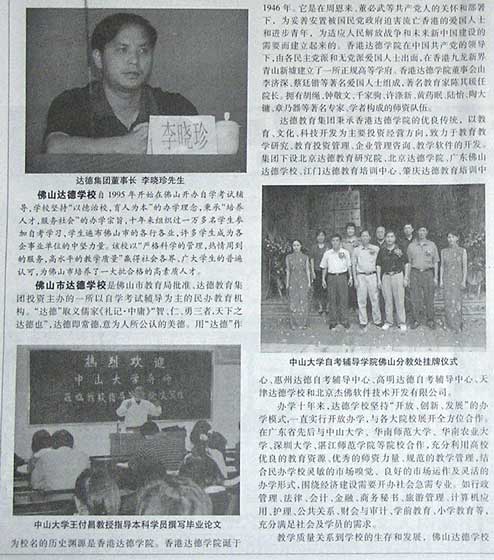 李晓珍
达德集团董事长 李晓珍先生
佛山达德学校自1995年开始在佛山开办自学考试辅
导,学校坚持“以德治校,育人为本”的办学理念,秉承“培养
人才,服务社会”的办学宗旨,十年来组织过一万多名学生参
加自考学习,学生遍布佛山市的各行各业,许多学生成为各
企事业单位的中坚力量。该校以“严格科学的管理,热情周到
的服务,高水平的教学质量”赢得社会各界,广大学生的普遍
认可,为佛山市培养了一大批合格的高素质人才。
佛山市达德学校是佛山市教育局批准、达德教育集
团投资主办的一所以自学考试辅导为主的民办教育机
构。“达德”取义儒家《礼记·中庸》“智、仁、勇三者,天下之
达德也”,达德即常德,意为人所公认的美德。用“达德”作
热烈欢迎
中山大学
中山大学王付昌教授指导本科学员撰写毕业论文
为校名的历史渊源是香港达德学院。香港达德学院诞于
1946年。它是在周恩来、董必武等共产党人的关怀和部署
下,为妥善安置被国民党政府迫害流亡香港的爱国人士
和进步青年,为适应人民解放战争和未来新中国建设的
需要而建立起来的。香港达德学院在中国共产党的领导
下,由各民主党派和无党派爱国人士出面,在香港九龙新界
青山新墟建立了一所正规高等学府。香港达德学院董事会由
李济深、蔡廷锴等著名爱国人士组成,著名教育家陈其瑗任
院长。拥有胡绳、钟敬文、千家驹、许涤新、黄药眠、陆诒、陶大
镛、章乃器等著名专家、学者构成的师资队伍。
达德教育集团秉承香港达德学院的优良传统,以教
育、文化、科技开发为主要投资经营方向,致力于教育教
学研究、教育投资管理、企业管理咨询、教学软件的开发。
集团下设北京达德教育研究院、北京达德学院、广东佛山
达德学校、江门达德教育培训中心、肇庆达德教育培训中
中山大学自考辅导学院佛山分教处挂牌仪式
心、惠州达德自考辅导中心、高明达德自考辅导中心、天
津达德学校和北京杰佛软件技术开发有限公司。
办学十年来,达德学校坚持“开放、创新、发展”的办
学模式,一直实行开放办学,与各大院校展开全方位合作。
在广东省先后与中山大学、华南师范大学、华南农业大
学、深圳大学、湛江师范学院等院校合作,充分利用高校
优良的教育资源、优秀的师资力量、规范的教学管理,结
合民办学校灵敏的市场嗅觉、良好的市场运作及灵活的
办学形式,围绕经济建设需要开办社会急需专业。如行政
管理、法律、会计、金融、商务秘书、旅游管理、计算机应
用、护理、公共关系、财会与审计、学前教育、小学教育等,
充分满足社会及学员的需求。
教学质量关系到学校的生存和发展,佛山达德学校